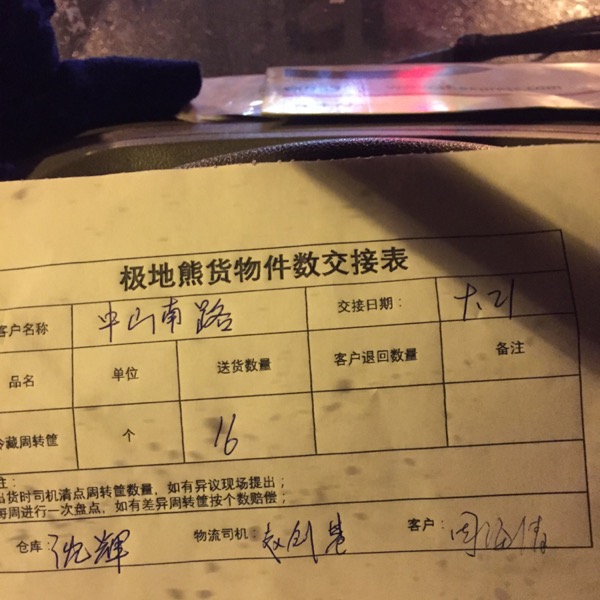 极地熊货物件数交接表
客户名称 中山南路 交接日期：
品名 单位 送货数量 客户退回数量 备注
冷藏周转筐 个 16
注：
出货时司机清点周转筐数量，如有异议现场提出；
每周进行一次盘点，如有差异周转筐按个数赔偿；
仓库：沈辉 物流司机： 客户：